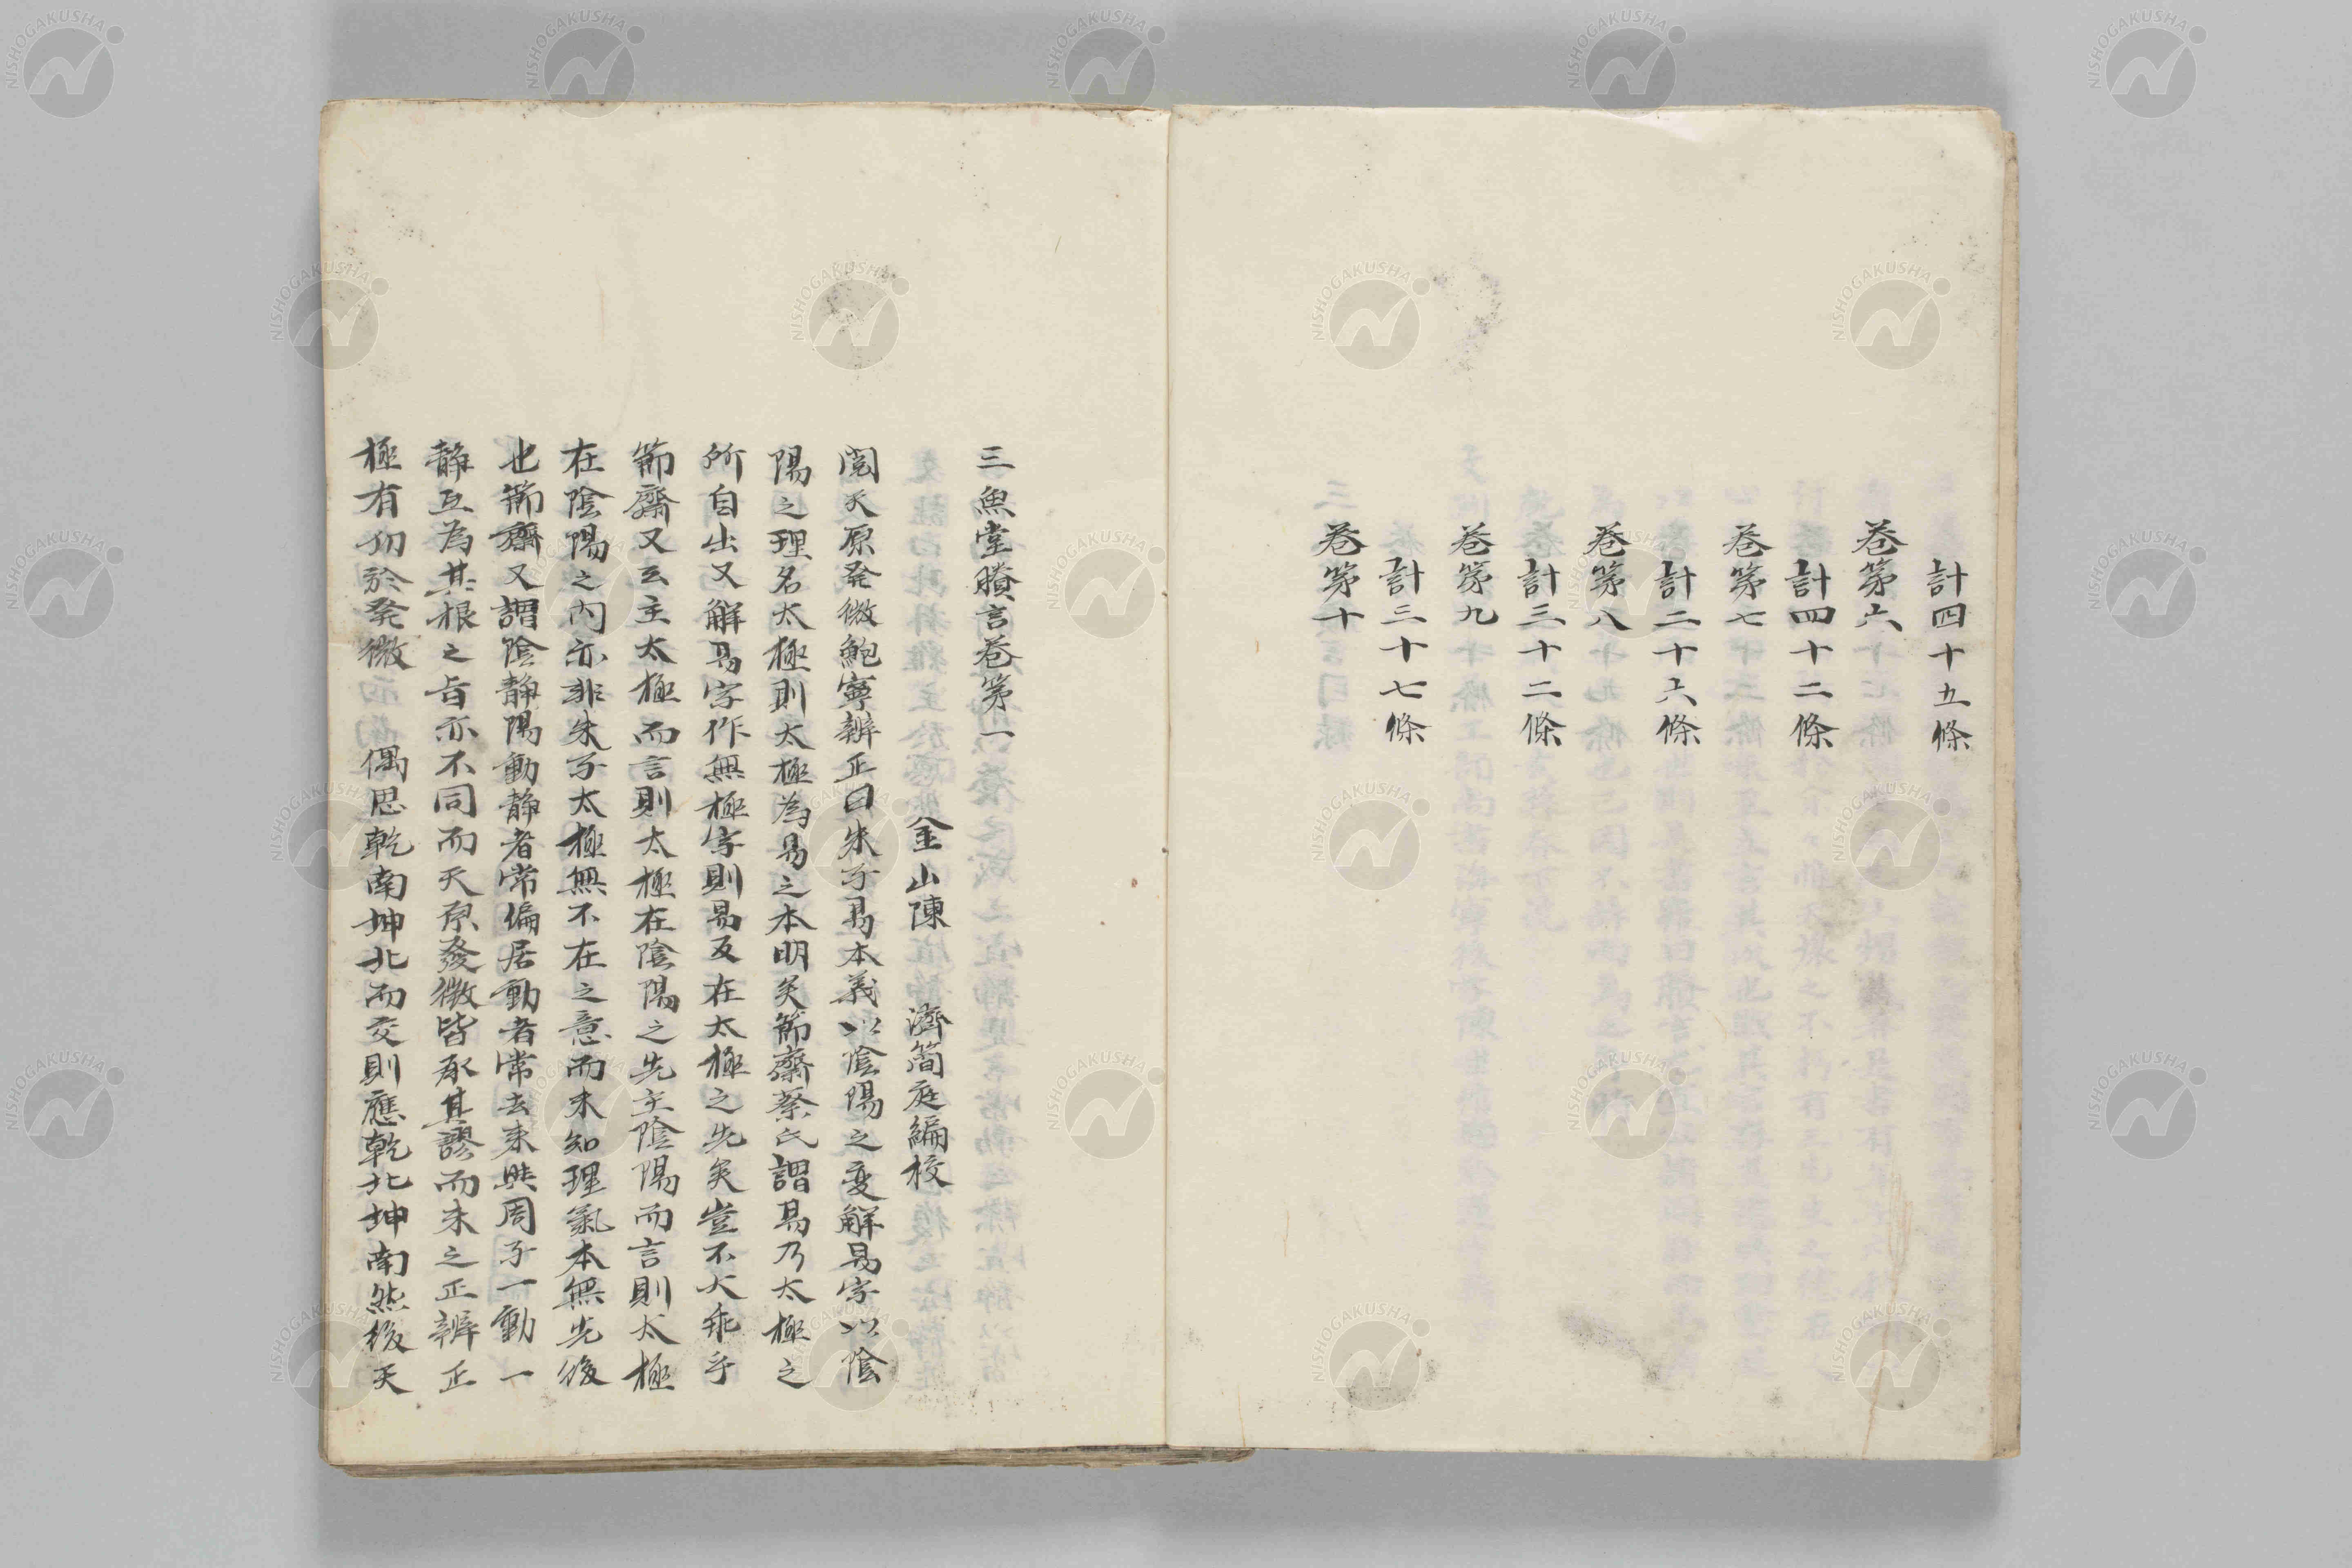 計四十五條
卷第六
計四十二條
卷第七
計二十六條
卷第八
計三十二條
卷第九
計三十七條
卷第十
三魚堂賸言卷第一
金山陳 濟簡庭編校
閱天原発微鮑寧辨正曰朱子易本義以陰陽之変解易字以陰
陽之理名太極則太極為易之本明矣節齋蔡氏謂易乃太極之
所自出又解易字作無極字則易反在太極之先矣豈不大乖乎
節齋又云主太極而言則太極在陰陽之先主陰陽而言則太極
在陰陽之内亦非朱子太極無不在之意而未知理氣本無先後
也節齋又謂陰静陽動静者常偏居動者常去来與周子一動一
静互為其根之旨亦不同而天原發微皆承其謬而未之正辨正
極有功於発微 偶思乾南坤北而交則應乾北坤南然後天
NISHOGAKUSHA